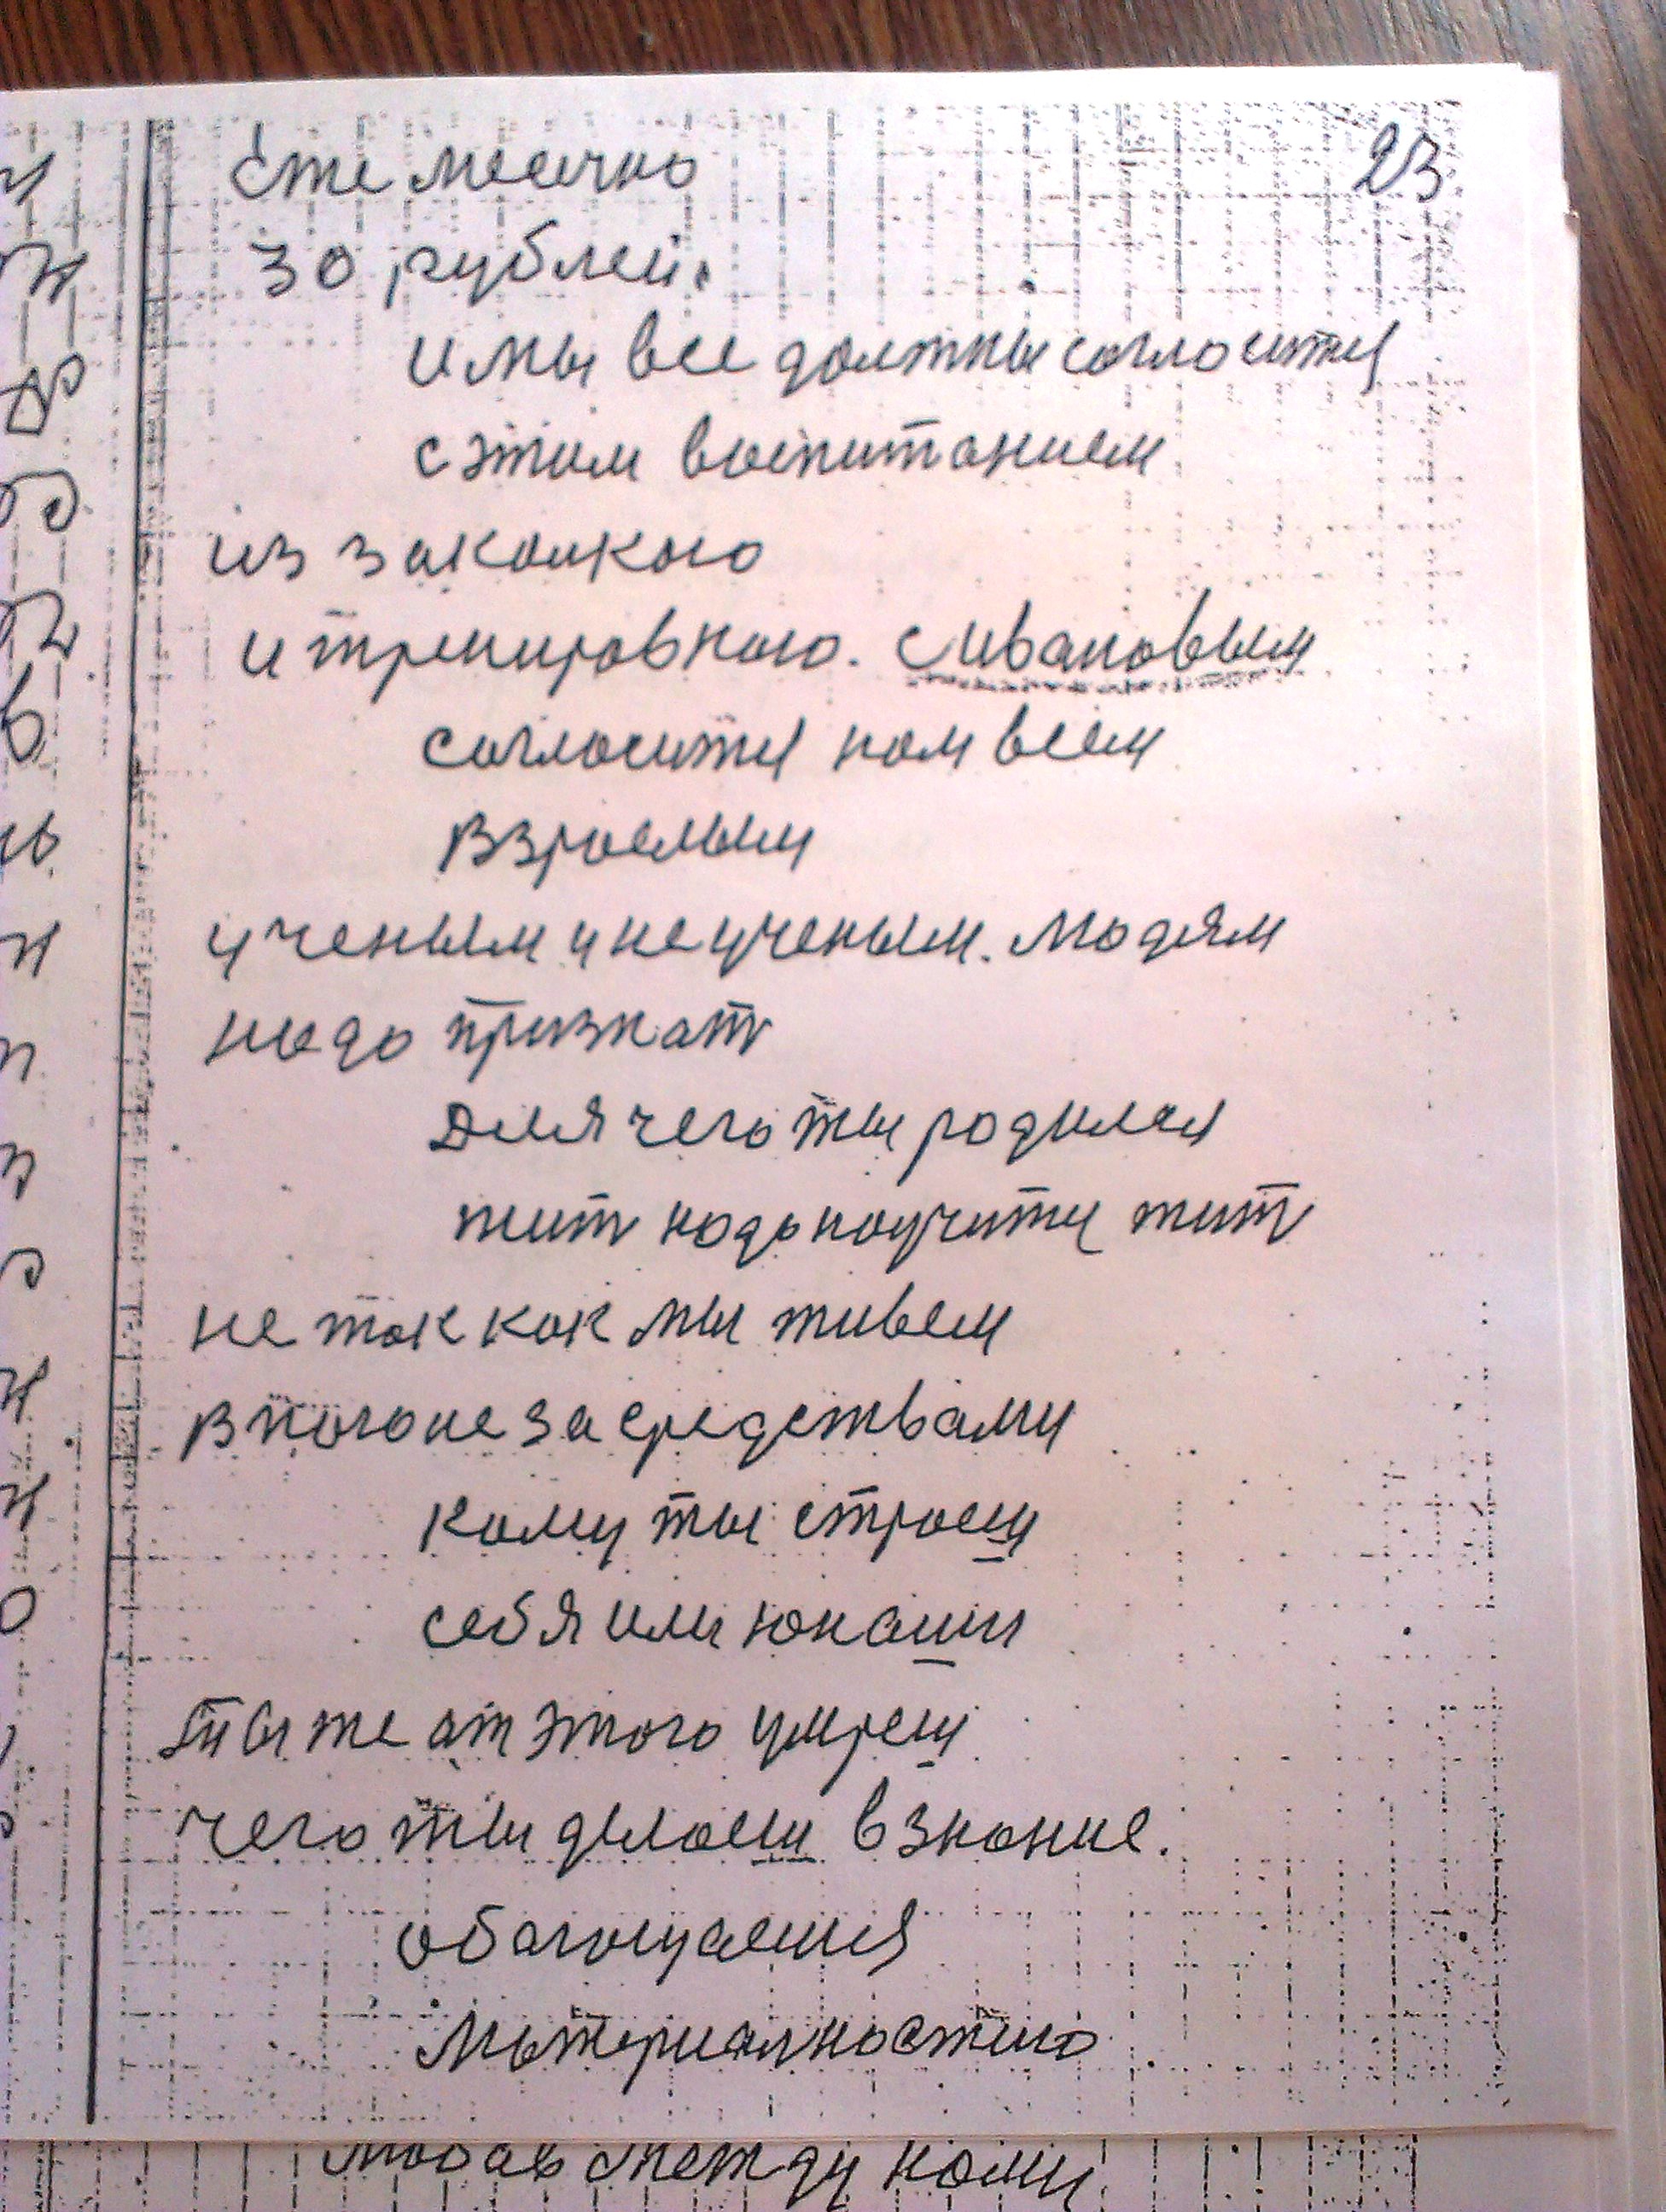 23
Ете месечно
30 рублей.
и мы все должны согласитя
с этим воспитанием
из закалкаго
и тренировкаго. с Ивановым
согласитя нам всем
взрослым
ученым и не ученым. людям
надо признат
Для чего ты родился
жит надо научитя жит
не так как мы живем
в погоне за средствами
кому ты строеш
себя или юнаши
ты же от этого умреш
чего ты делаеш в знание.
обагощаешя
материалностию
между нами